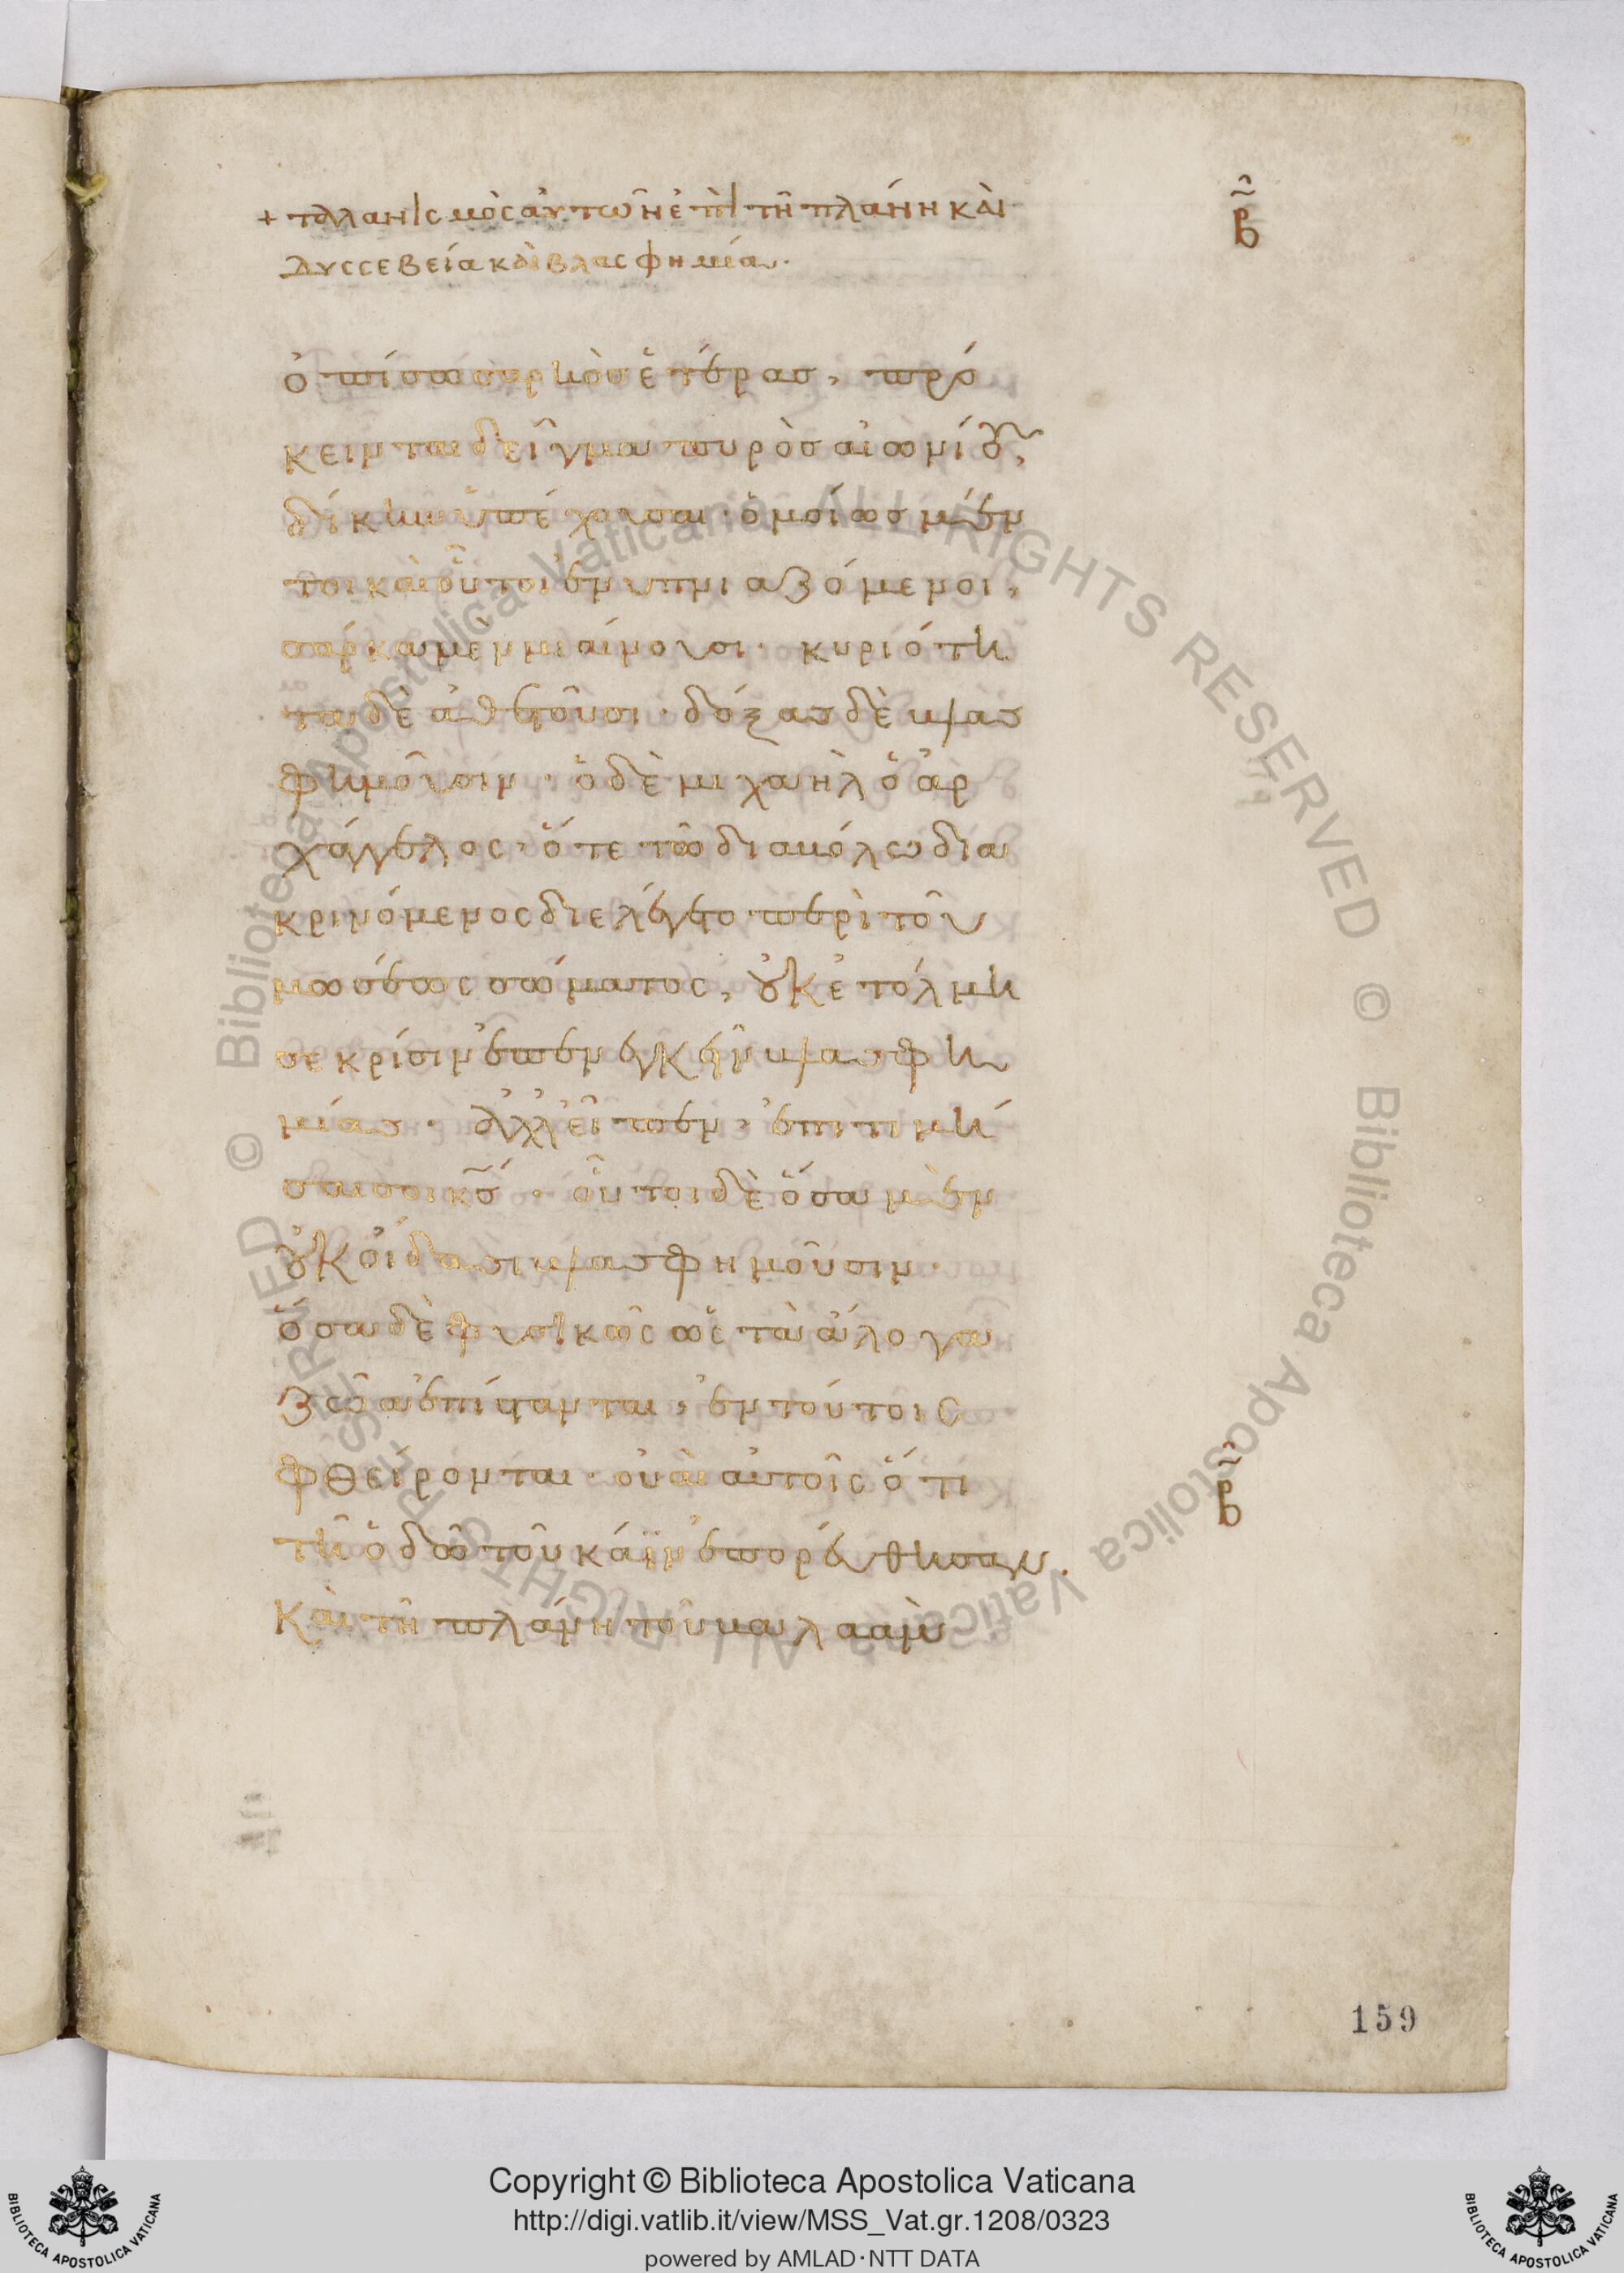 + ταλανισμὸς αὐτῶν ἐπὶ τῆ πλάνη καὶ
β
δυσσεβεία καὶ βλασφημία.
ὀπίσω σαρκὸς ἑτέρας, πρό
κεινται δεῖγμα πυρὸς αἰωνίου,
δίκην ὑπέχουσαι· ὁμοίως μέν
τοι καὶ οὗτοι ἐνυπνιαζόμενοι,
σάρκα μὲν μιαίνουσι· κυριότη
τα δὲ ἀθετοῦσι· δόξας δὲ βλασ
φημοῦσιν· ὁ δὲ μιχαὴλ ὁ ἀρ
χάγγελος· ὅτε τῶ διαβόλω δια
κρινόμενος διελέγετο περὶ τοῦ
μωσέως σώματος, οὐκ ἐτόλμη
σε κρίσιν ἐπενεγκεῖν βλασφη
μίας· ἀλλ' εἶπεν· ἐπιτιμή
σαι σοι κς· οὗτοι δὲ ὅσα μὲν
οὐκ οἴδασι βλασφημοῦσιν·
ὅσα δὲ φυσικῶς ὡς τὰ ἄλογα
ζῶα ἐπίστανται, ἐν τούτοις
φθείρονται· οὐαὶ αὐτοῖς ὅτι
β
τῆ ὁδῶ τοῦ κάϊν ἐπορεύθησαν.
Καὶ τῆ πλάνη τοῦ βαλαὰμ
159
© Biblioteca Apostolica Vaticana ALL RIGHTS RESERVED © Biblioteca Apostolica Vaticana ALL RIGHTS RESERVED
Copyright © Biblioteca Apostolica Vaticana
http://digi.vatlib.it/view/MSS_Vat.gr.1208/0323
powered by AMLAD·NTT DATA
BIBLIOTECA APOSTOLICA VATICANA
BIBLIOTECA APOSTOLICA VATICANA